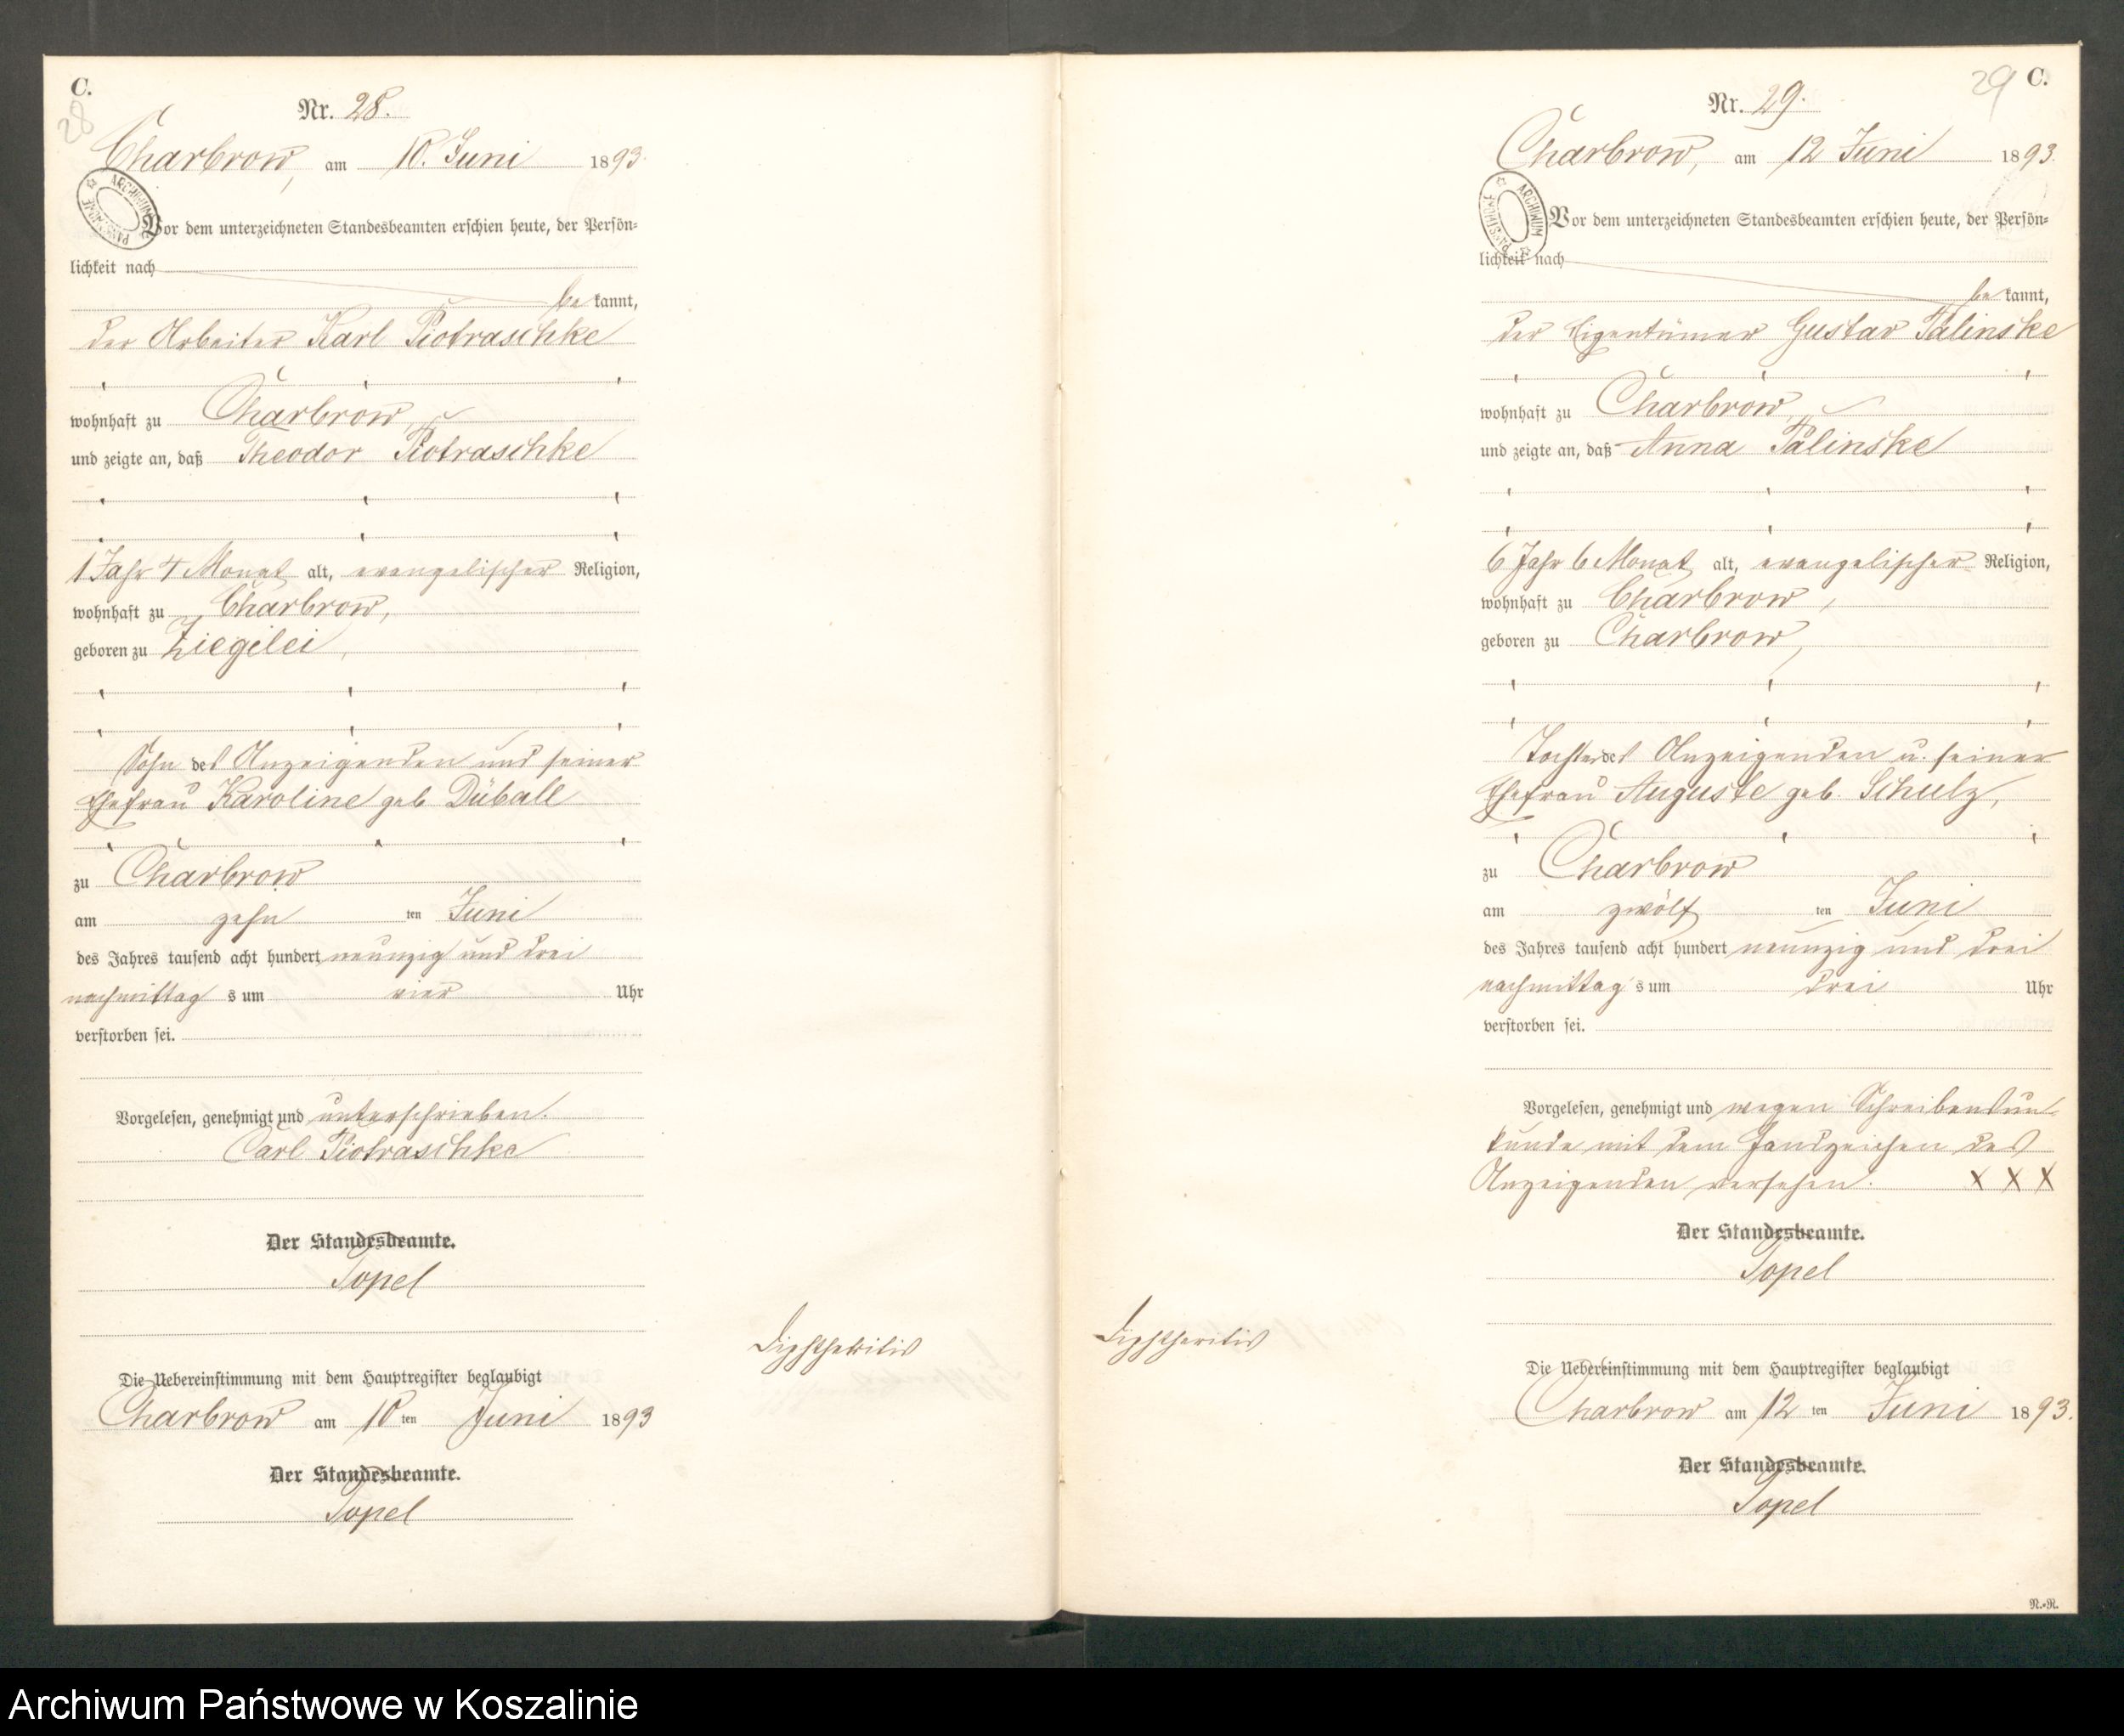 C.
28
Nr. 28.
Charbrow, am 10. Juni 1893.
ARCHIWUM PAŃSTWOWE
Vor dem unterzeichneten Standesbeamten erschien heute, der Persön-
lichkeit nach
be kannt,
der Arbeiter Karl Piotraschke
wohnhaft zu Charbrow,
und zeigte an, daß Theodor Piotraschke
1 Jahr 4 Monat alt, evangelischer Religion,
wohnhaft zu Charbrow,
geboren zu Ziegelei,
Sohn des Anzeigenden und seiner
Ehefrau Karoline geb Düball
zu Charbrow
am zehn ten Juni
des Jahres tausend acht hundert neunzig und drei
nachmittag s um vier Uhr
verstorben sei.
Vorgelesen, genehmigt und unterschrieben.
Carl Piotraschke
Der Standesbeamte.
Topel
Diphtheritis
Die Uebereinstimmung mit dem Hauptregister beglaubigt
Charbrow am 10 ten Juni 1893
Der Standesbeamte.
Topel
29 C.
Nr. 29.
Charbrow, am 12 Juni 1893.
ARCHIWUM PAŃSTWOWE
Vor dem unterzeichneten Standesbeamten erschien heute, der Persön-
lichkeit nach
be kannt,
der Eigentümer Gustav Palinske
wohnhaft zu Charbrow,
und zeigte an, daß Anna Palinske
6 Jahr 6 Monat alt, evangelischer Religion,
wohnhaft zu Charbrow,
geboren zu Charbrow,
Tochter des Anzeigenden u. seiner
Ehefrau Auguste geb. Schulz,
zu Charbrow
am zwölf ten Juni
des Jahres tausend acht hundert neunzig und drei
nachmittag s um drei Uhr
verstorben sei.
Vorgelesen, genehmigt und wegen Schreibensun-
kunde mit dem Handzeichen des
Anzeigenden versehen. X X X
Der Standesbeamte.
Topel
Diphtheritis
Die Uebereinstimmung mit dem Hauptregister beglaubigt
Charbrow am 12 ten Juni 1893.
Der Standesbeamte.
Topel
N.-R.
Archiwum Państwowe w Koszalinie